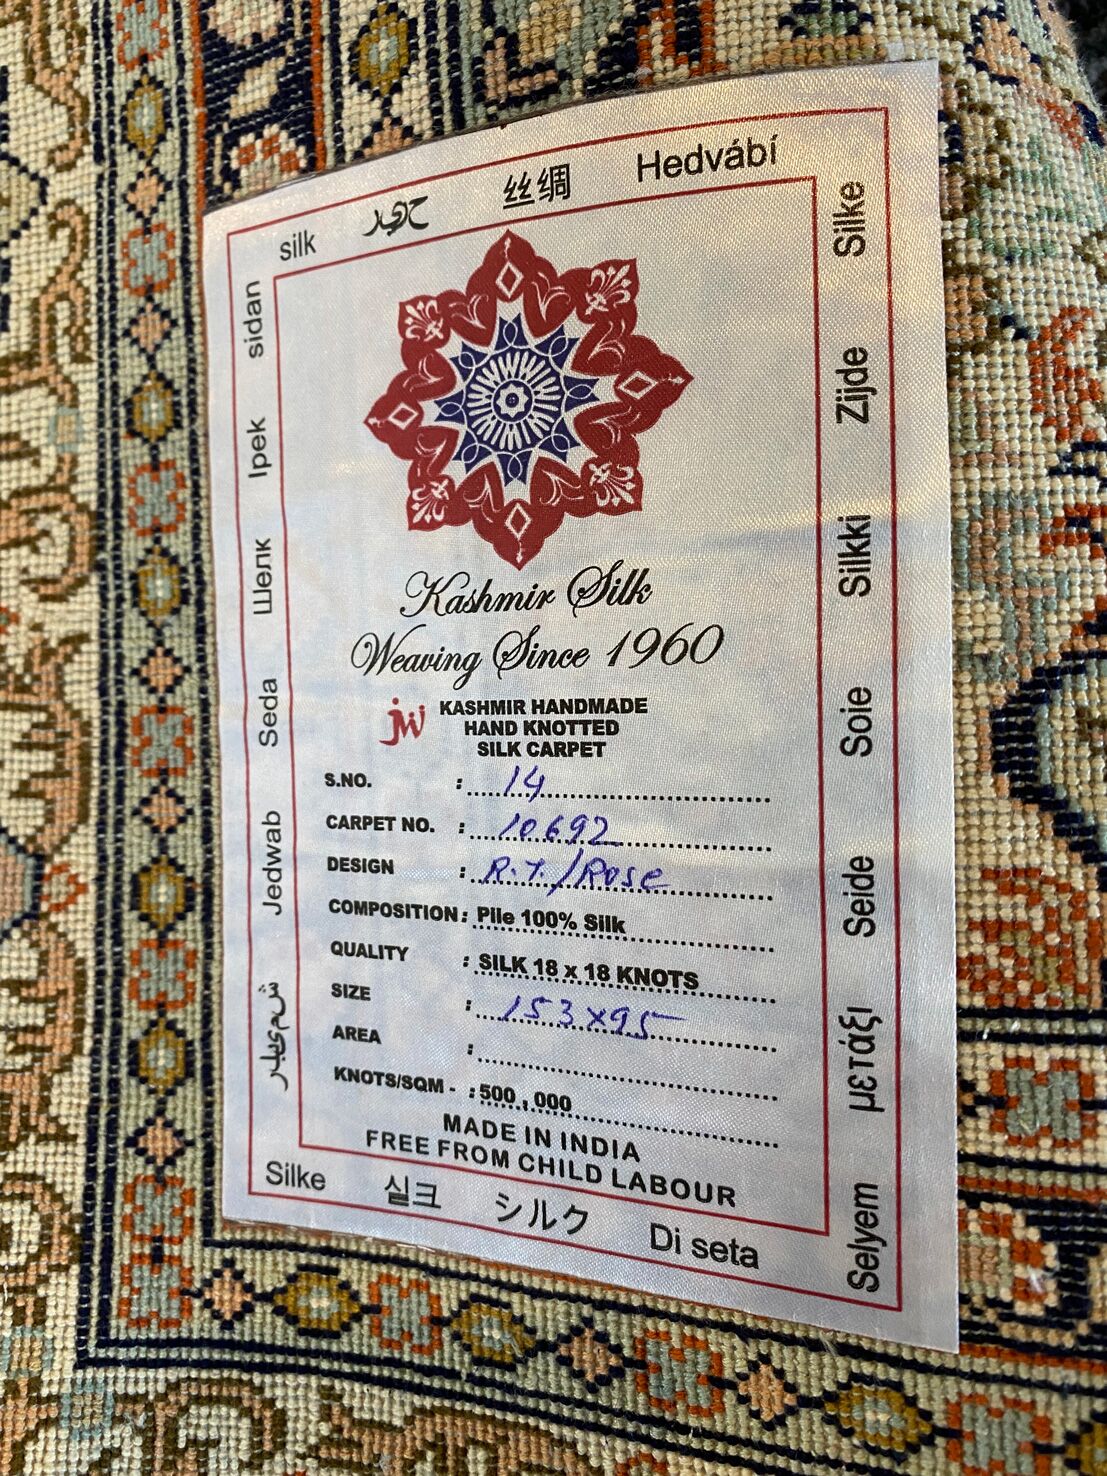 silk حرير 丝绸 Hedvábí
sidan
Ipek
Шелк
Seda
Jedwab
Silke
Zijde
Silkki
Soie
Seide
μετάξι
Selyem
Kashmir Silk
Weaving Since 1960
jw KASHMIR HANDMADE
HAND KNOTTED
SILK CARPET
S.NO. : 14
CARPET NO. : 10692
DESIGN : R.T./Rose
COMPOSITION : Pile 100% Silk
QUALITY : SILK 18 x 18 KNOTS
SIZE : 153x95
AREA :
KNOTS/SQM - : 500,000
MADE IN INDIA
FREE FROM CHILD LABOUR
Silke 실크 シルク Di seta